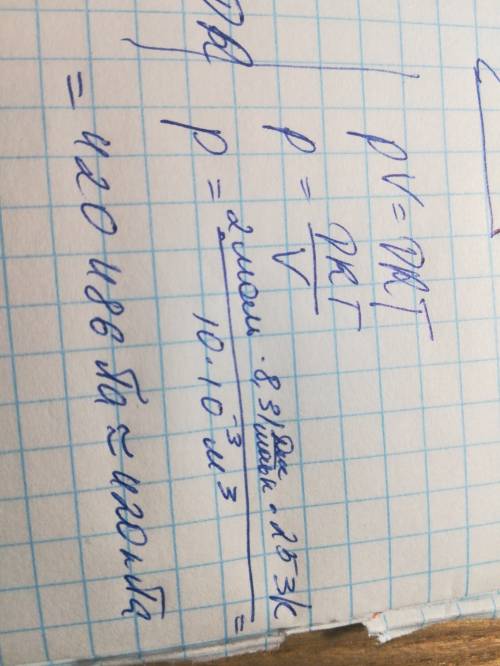 pV = νRT
p = νRT / V
p = 2 моль · 8,31 Дж/моль·К · 253К / 10·10⁻³ м³ =
= 420 486 Па ≈ 420 кПа